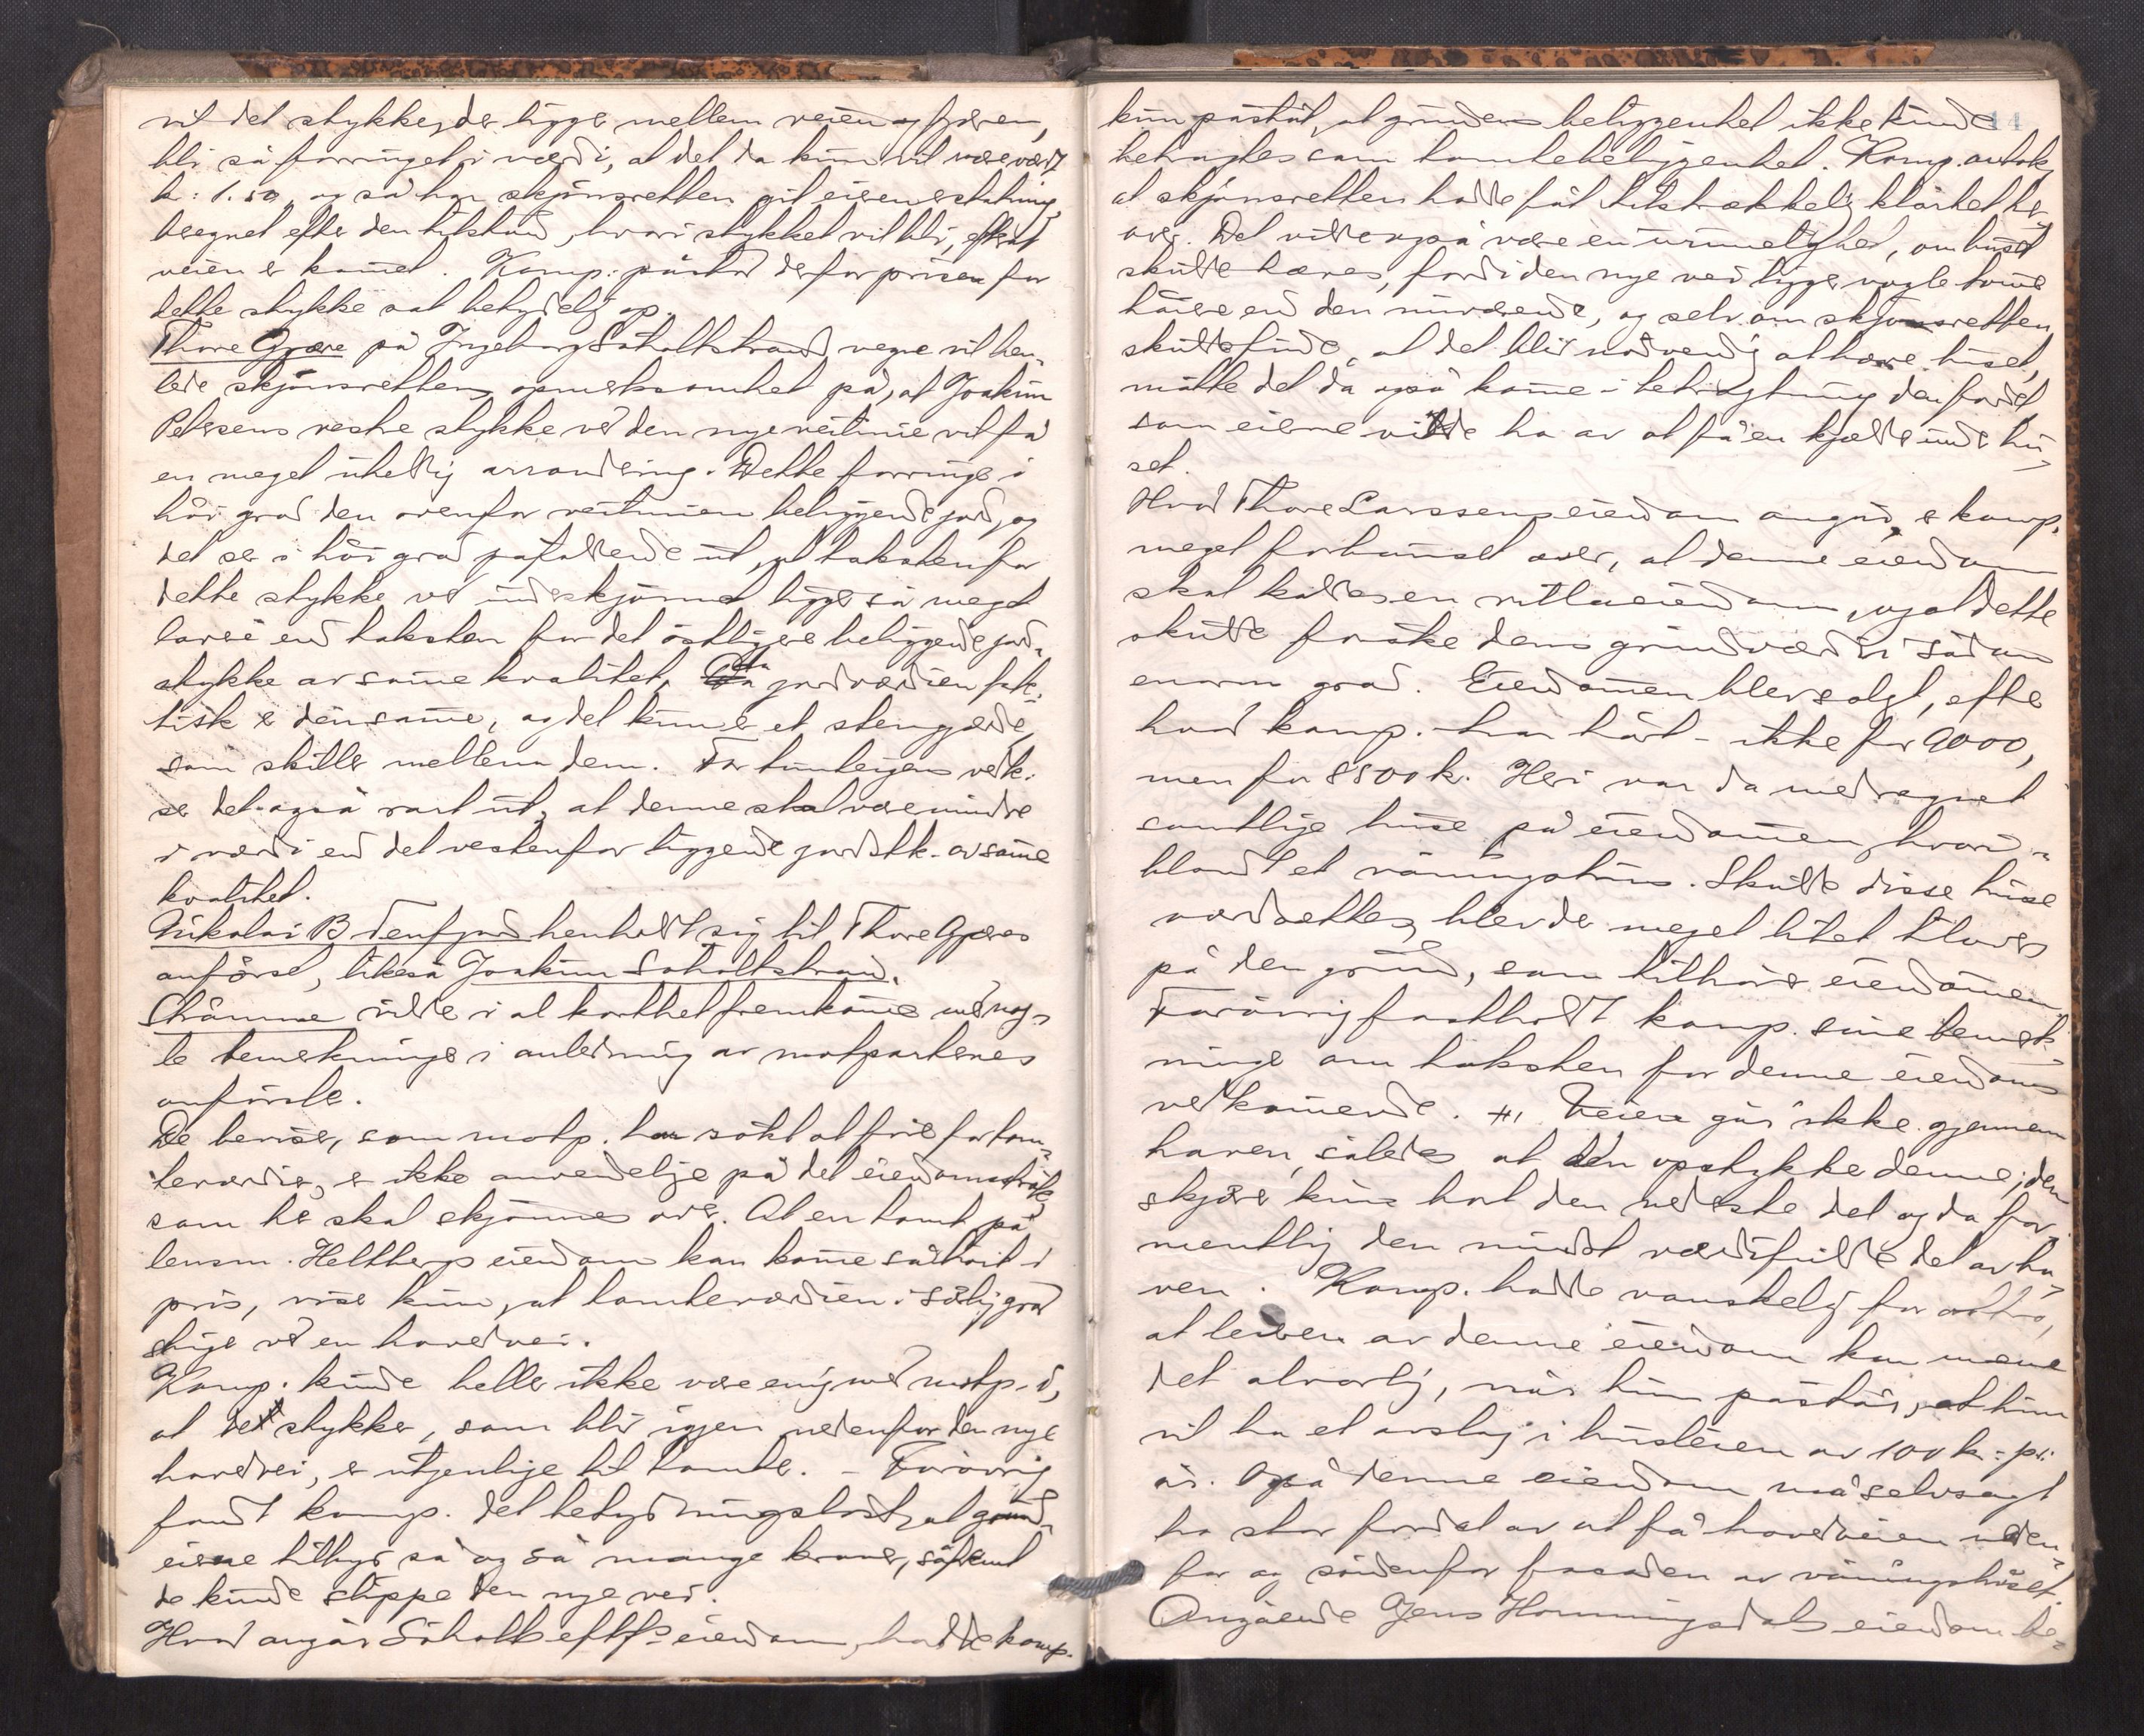 vil det stykke, der ligger mellem veien og fjæren,
bli så forringet i værdi, at det da kun vil være værd
k: 1.50, og så har skjønsretten git eieren erstatning
beregnet efter den tilstand, hvori stykket vil bli, efterat
veien er kommet. Komp: påstod derfor prisen for
dette stykke sat betydelig op.
Thore Gjære på Ingeborg Søholtstrands vegne vil hen-
lede skjønsrettens opmerksomhet på, at Joakim
Petersens vestre stykke ved den nye veilinie vil få
en meget uheldig arrondering. Dette forringer i
høi grad den ovenfor veilinien beliggende jord, og
det ser i høi grad påfallende ut, at taksten for
dette stykke ved underskjønnet ligger så meget
lavere end taksten for det østligere beliggende jord-
stykke av samme kvalitet, da jordværdien fak-
tisk er den samme, og det kun er et stengjærde,
som skiller mellem dem. For tunteigens vedk.
ser det også rart ut, at denne skal være mindre
i værdi end det vestenfor liggende jordstk. av samme
kvalitet.
Nikolai B Tenfjord henholdt sig til Thore Gjæres
anførsel, likeså Joakim Søholtstrand.
Strømme vilde i al korthet fremkomme med nog-
le bemerkninger i anledning av motpartenes
anførsle.
De beviser, som motp. har søkt at føre for tom-
teværdier, er ikke anvendelige på det eiendomsstrøk,
som her skal skjønnes over. At en tomt på
lensm. Heltbergs eiendom kan komme så høit i
pris, viser kun, at tomteværdien i sålig grad
stiger ved en hovedvei.
Komp. kunde heller ikke være enig med motp. i,
at det stykke, som blir igjen nedenfor den nye
hovedvei, er utjenlige til tomter. - Forøvrig
fandt komp. det betydningsløst, at grund-
eierne tilbyr så og så mange kroner, såfremt
de kunde slippe den nye vei.
Hvad angår Søholt eftf's eiendom, hadde komp.
44
kun påståt, at grundens beliggenhet ikke kunde
betragtes som tomtebeliggenhet. Komp. antok,
at skjønsretten hadde fåt tilstrækkelig klarhet her-
over. Det vilde også være en urimelighet, om huset
skulde hæves, fordi den nye vei ligger nogle tomme
høiere end den nuværende, og selv om skjønsretten
skulde finde, at det blir nødvendig at hæve huset,
måtte det da også komme i betragtning den fordel,
som eierne vilde ha av at få en kjelder under hu-
set.
Hvad Thore Larssens eiendom angår, er komp.
meget forbauset over, at denne eiendom
skal kaldes en villaeiendom, og at dette
skulde forøke dens grundværdi i sådan
enorm grad. Eiendommen blev solgt, efter
hvad komp. har hørt - ikke for 9000,
men for 8500 k. Heri var da medregnet
samtlige huse på eiendommen, hvori-
blandt et våningshus. Skulde disse huse
værdsettes, blev der meget litet tilovers
på den grund, som tilhører eiendommen.
Forøvrig fastholdt komp. sine bemerk-
ninger om taksten for denne eiendoms
vedkommende. Veien går ikke gjennem
haven, således at den opstykker denne; den
skjærer kun bort den nederste del og da for-
mentlig den mindst værdifulde del av ha-
ven. Komp. hadde vanskelig for at tro,
at leieren av denne eiendom kan mene
det alvorlig, når hun påstår, at hun
vil ha et avslag i husleien av 100 k: pr.
år. Også denne eiendom må selvsagt
ha stor fordel av at få hovedveien neden-
for og søndenfor fasaden av våningshuset.
Angående Jens Honningsdals eiendom be-